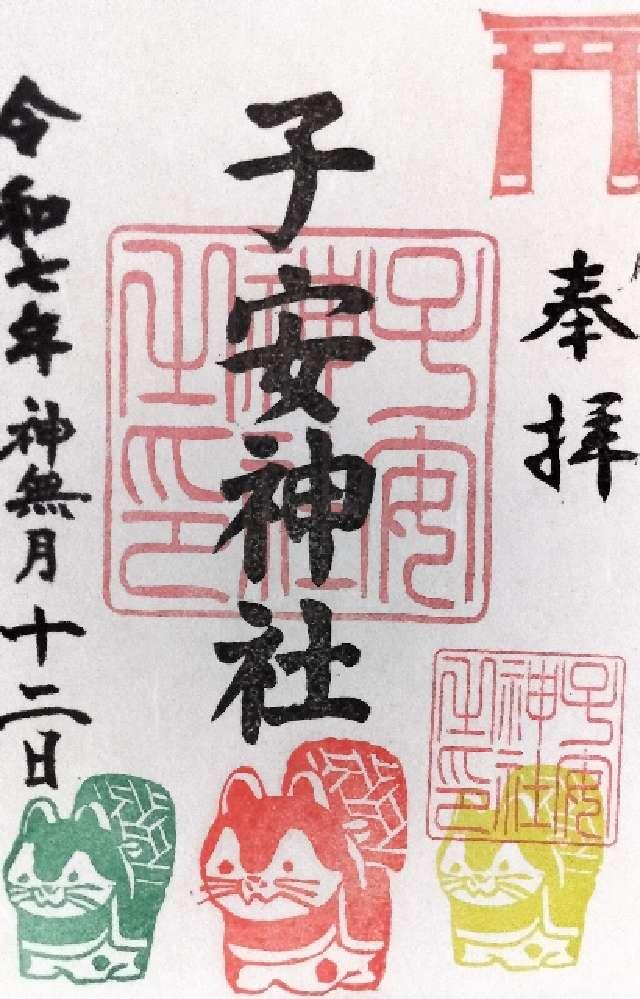 奉拝
子安神社
子安神社之印
令和七年神無月十二日
子安神社之印